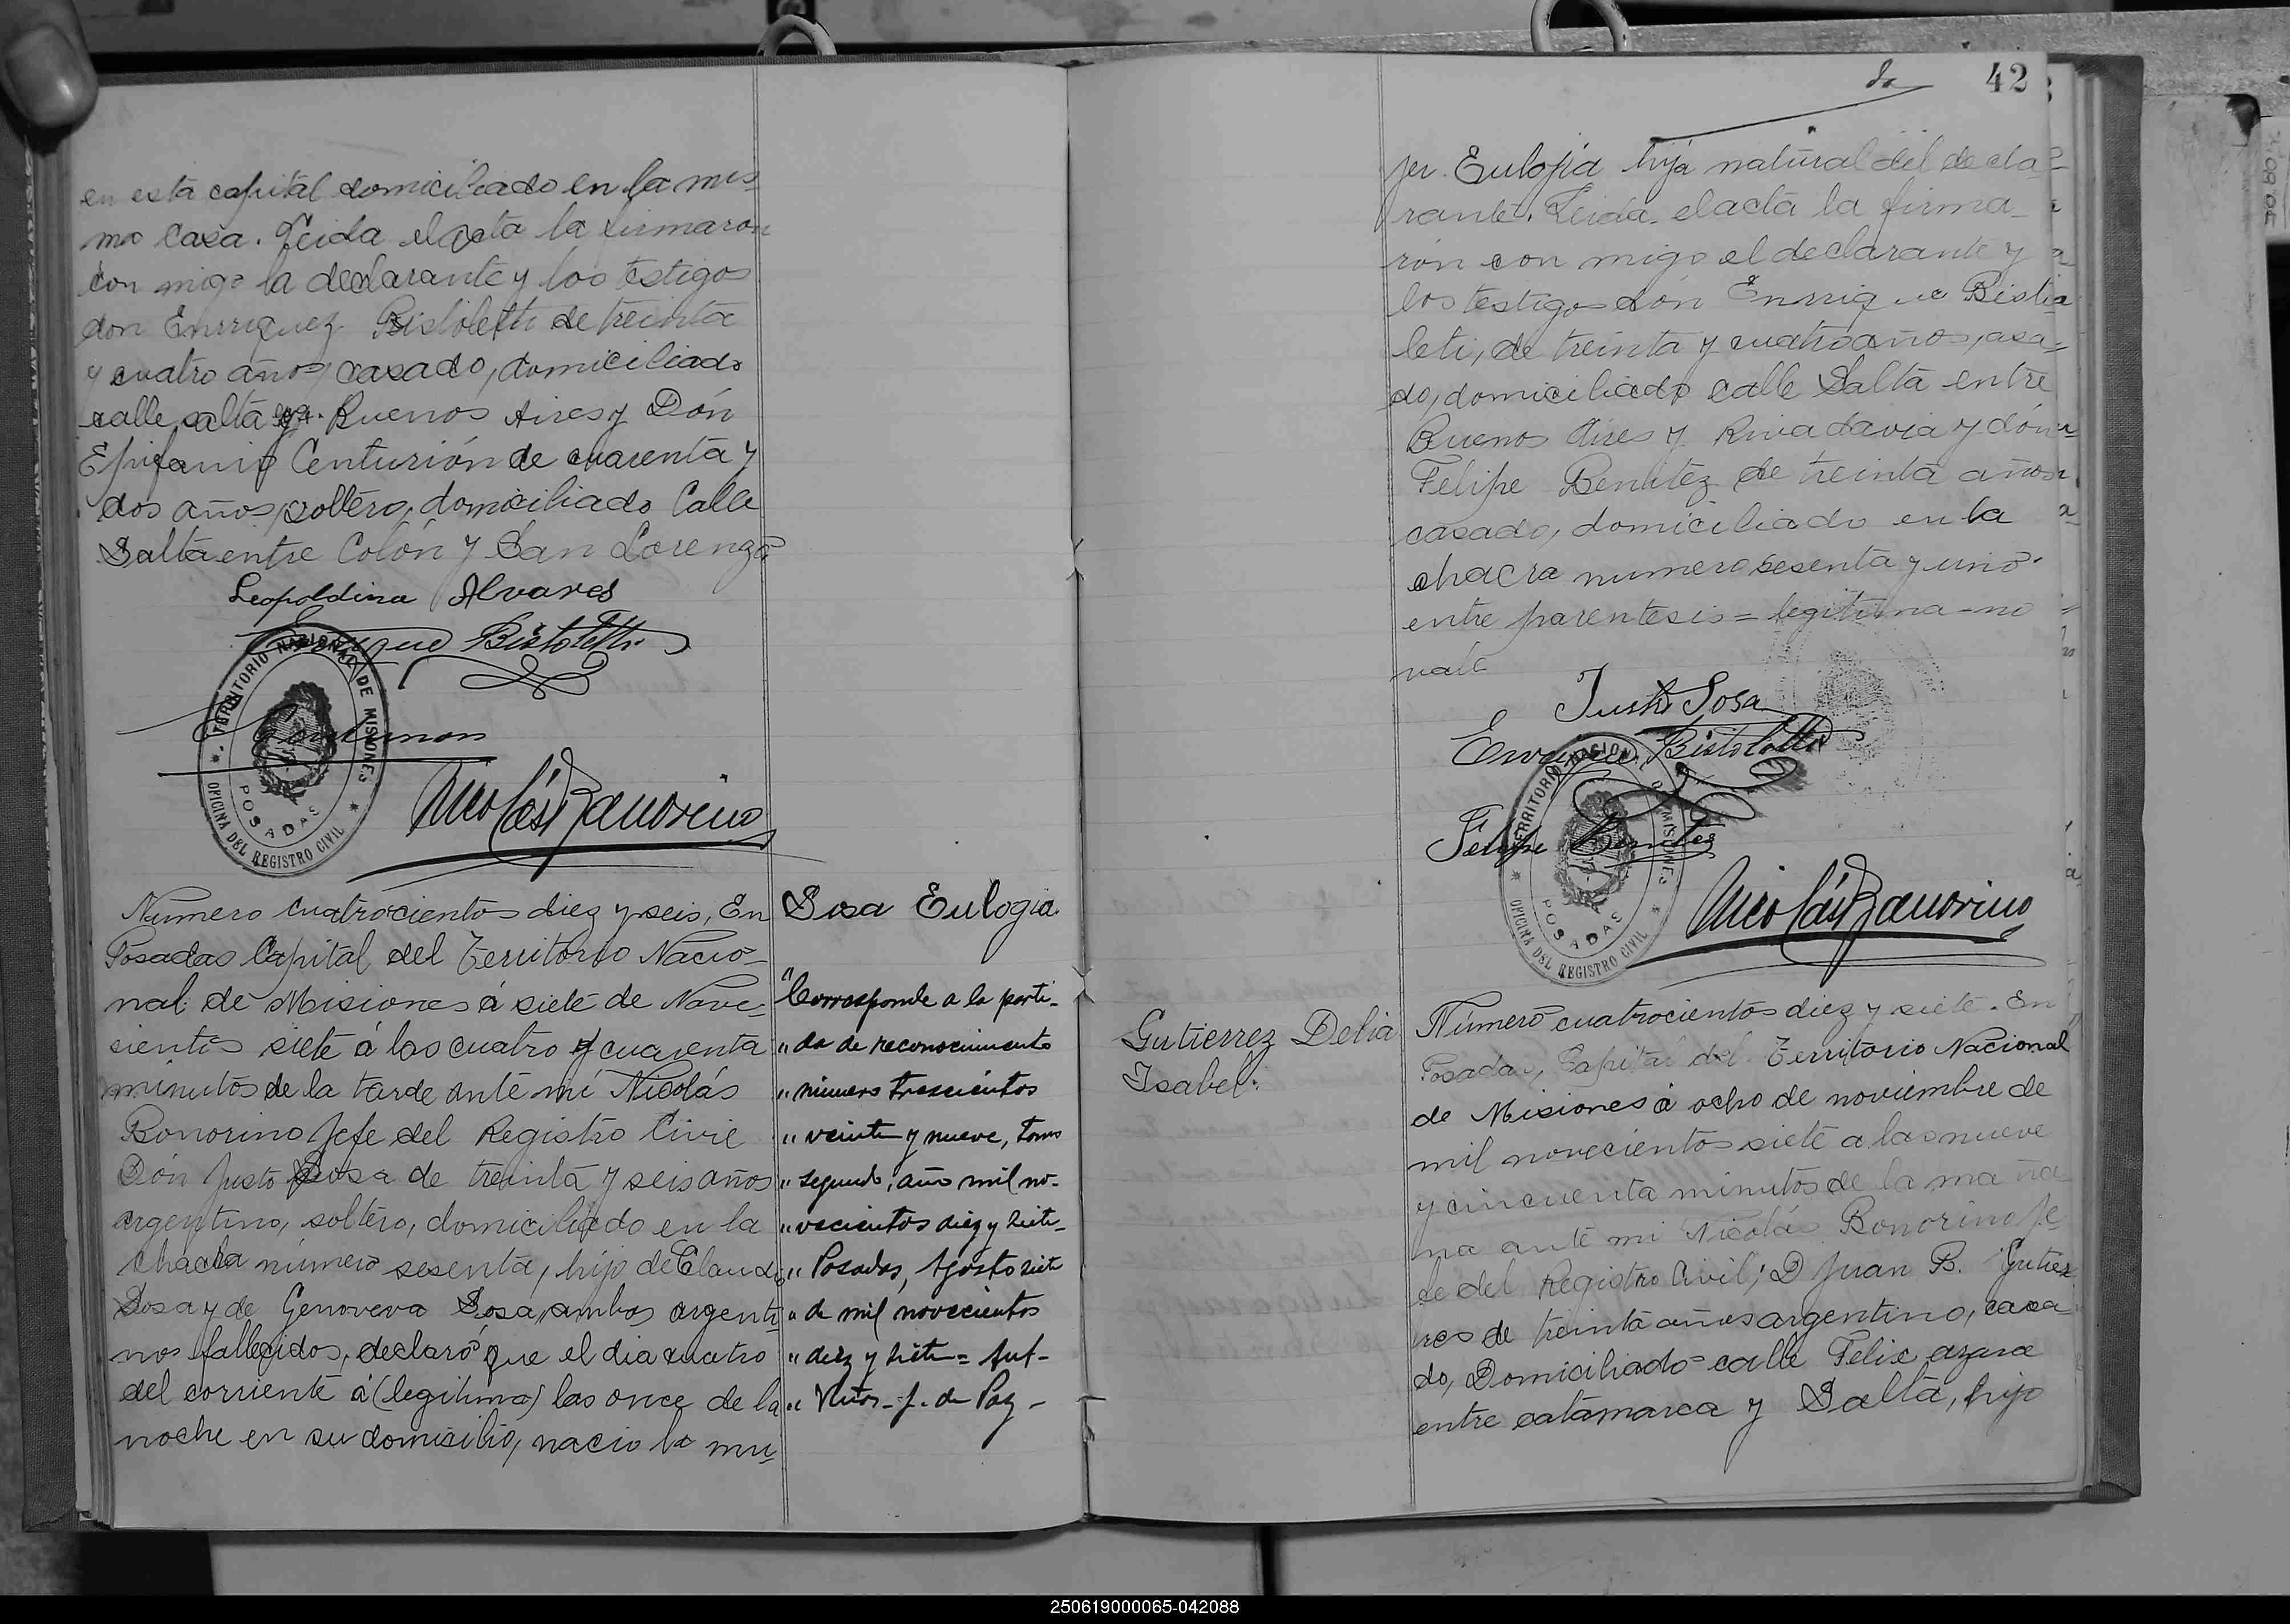 en esta capital domiciliado en la mis
ma casa. Leida el acta la firmaron
con migo la declarante y los testigos
don Enrriquez Bistoletti de treinta
y cuatro años, casado, domiciliado
calle salta Buenos Aires y Dón
Epifanio Centurión de cuarenta y
dos años, soltero, domiciliado Calle
Salta entre Colón y San Lorenzo
Leopoldina Alvares
Enrique Bistoletti
TERRITORIO NACIONAL DE MISIONES
POSADAS
OFICINA DEL REGISTRO CIVIL
Centurion
Nicolás Bonorino
Número cuatrocientos diez y seis, En
Posadas Capital del Territorio Nacio-
nal de Misiones á siete de Nove-
cientos siete á las cuatro y cuarenta
minutos de la tarde ante mí Nicolás
Bonorino Jefe del Registro Civil
Dón Justo Sosa de treinta y seis años
argentino, soltero, domiciliado en la
chacra número sesenta, hijo de Claudio
Sosa y de Genoveva Sosa, ambos argenti-
nos fallecidos, declaró que el dia cuatro
del corriente á (legitima) las once de la
noche en su domicilio, nacio la mu-
Sosa Eulogia
"Corresponde a la parti-
"da de reconocimiento
"número trescientos
"veinte y nueve, tomo
"segundo, año mil no-
"vecientos diez y siete-
"Posadas, Agosto siete
"de mil novecientos
"diez y siete=
"J. de Paz-
42
jer. Eulojia hija natural del decla-
rante. Leida el acta la firma-
rón con migo el declarante y
los testigos dón Enrrique Bisto-
leti, de treinta y cuatro años, casa-
do, domiciliado calle Salta entre
Buenos Aires y Rivadavia y dón
Felipe Benitez de treinta años
casado, domiciliado en la
chacra numero sesenta y uno.
entre parentesis = legitima - no
vale
Justo Sosa
Enrique Bistoletti
Felipe Benitez
TERRITORIO NACIONAL DE MISIONES
POSADAS
OFICINA DEL REGISTRO CIVIL
Nicolás Bonorino
Gutierrez Delia
Isabel.
Número cuatrocientos diez y siete. En
Posadas, Capital del Territorio Nacional
de Misiones á ocho de noviembre de
mil novecientos siete a las nueve
y cincuenta minutos de la maña
na ante mi Nicolás Bonorino Je
fe del Registro Civil; D Juan B. Gutier
res de treinta años argentino, casa
do, Domiciliado calle Felix azara
entre catamarca y Salta, hijo
250619000065-042088